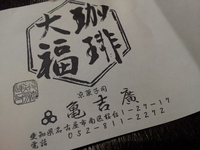 珈琲
大福
京菓子司
亀吉廣
愛知県名古屋市南区
電話 052-811-2272